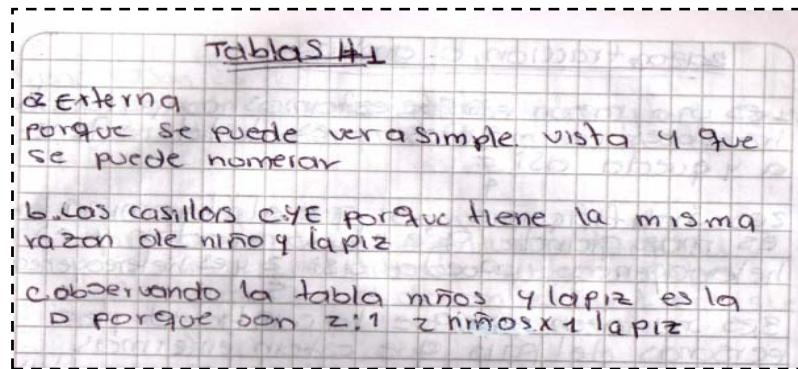 Tablas #1
a Externa
porque se puede ver a simple vista y que
se puede nomerar
b. Las casillas C y E porque tiene la misma
razon de niño y lapiz
c. observando la tabla niños y lapiz es la
D porque son 2:1 2 niños x 1 lapiz